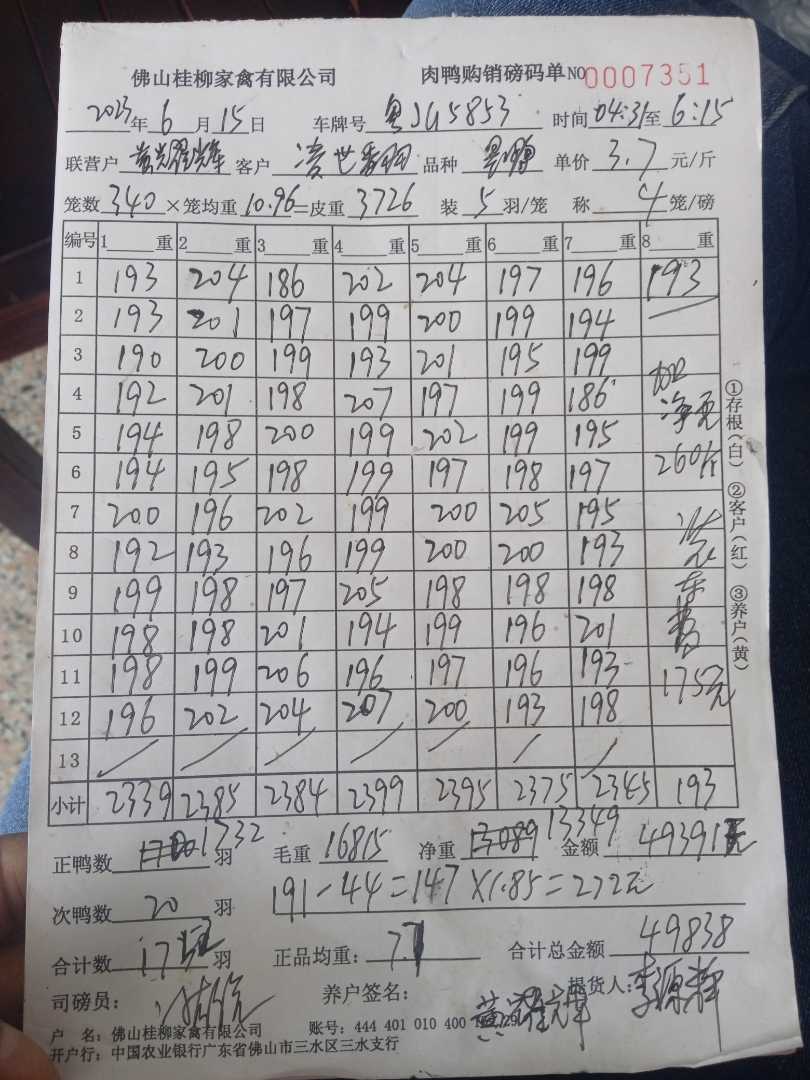 佛山桂柳家禽有限公司 肉鸭购销磅码单 NO 0007351
2023年6月15日 车牌号 粤JG5853 时间 04:31至 6:15
联营户 黄耀辉 客户 品种 单价 3.7 元/斤
笼数 340 ×笼均重 10.96 =皮重 3726 装 5 羽/笼 称 4 笼/磅
编号 1 重 2 重 3 重 4 重 5 重 6 重 7 重 8 重
1 193 204 186 202 204 197 196 193
2 193 201 197 199 200 199 194
3 190 200 199 193 201 195 199
4 192 201 198 207 197 199 186 加
5 194 198 200 199 202 199 195 净重
6 194 195 198 199 197 198 197 260斤
7 200 196 202 199 200 205 195 洗
8 192 193 196 199 200 200 193
9 199 198 197 205 198 198 198 车
10 198 198 201 194 199 196 201 费
11 198 199 206 196 197 196 193 175元
12 196 202 204 207 200 193 198
13
小计 2339 2385 2384 2399 2395 2375 2345 193
①存根(白) ②客户(红) ③养户(黄)
正鸭数 1732 羽 毛重 16815 净重 13089 13349 金额 49391元
次鸭数 20 羽 191-44=147×1.85=272元
合计数 羽 正品均重: 7.7 合计总金额 49838
司磅员: 养户签名: 黄耀辉 提货人: 李源辉
户 名: 佛山桂柳家禽有限公司 账号: 444 401 010 400
开户行: 中国农业银行广东省佛山市三水区三水支行